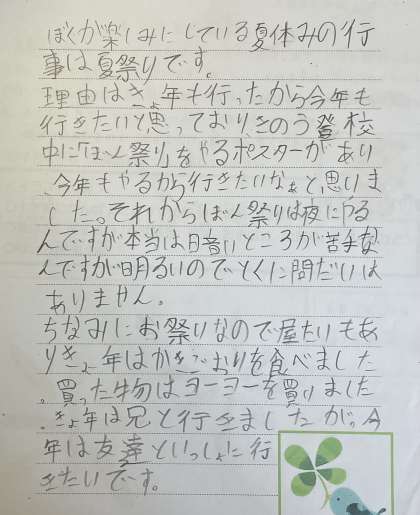 ぼくが楽しみにしている夏休みの行
事は夏祭りです。
理由はきょ年も行ったから今年も
行きたいと思っており、きのう登校
中に「ぼん祭り」をやるポスターがあり
、今年もやるから行きたいなぁと思いま
した。それからぼん祭りは夜にやる
んですが本当は暗いところが苦手な
んですが明るいのでとくに問だいは
ありません。
ちなみにお祭りなので屋たいもあ
りきょ年はかきごおりを食べました
。買った物はヨーヨーを買いました
。きょ年は兄と行きましたが。今
年は友達といっしょに行
きたいです。